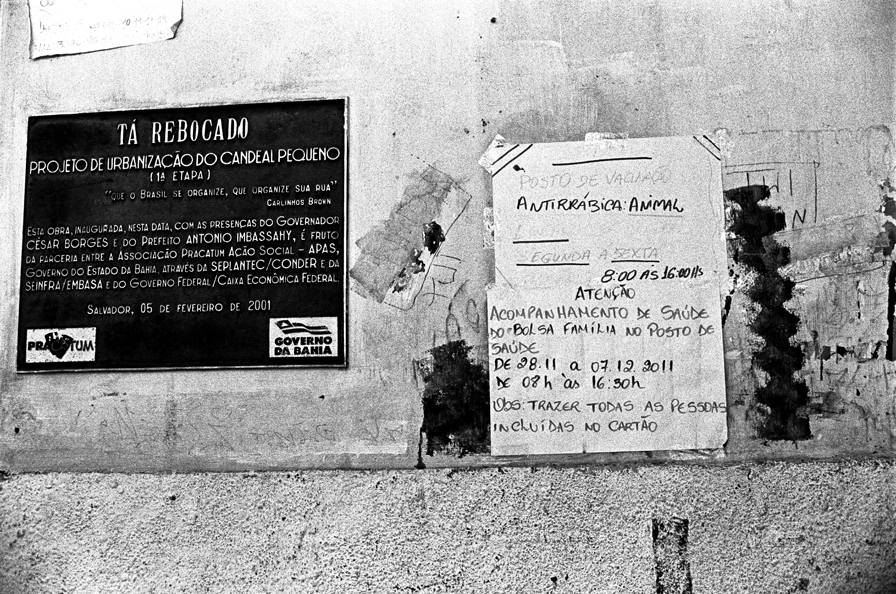 TÁ REBOCADO
PROJETO DE URBANIZAÇÃO DO CANDEAL PEQUENO
(1ª ETAPA)
"QUE O BRASIL SE ORGANIZE, QUE ORGANIZE SUA RUA"
CARLINHOS BROWN
ESTA OBRA, INAUGURADA, NESTA DATA, COM AS PRESENÇAS DO GOVERNADOR
CÉSAR BORGES E DO PREFEITO ANTONIO IMBASSAHY, É FRUTO
DA PARCERIA ENTRE A ASSOCIAÇÃO PRACATUM AÇÃO SOCIAL - APAS,
GOVERNO DO ESTADO DA BAHIA, ATRAVÉS DA SEPLANTEC/CONDER E DA
SEINFRA/EMBASA E DO GOVERNO FEDERAL/CAIXA ECONÔMICA FEDERAL.
SALVADOR, 05 DE FEVEREIRO DE 2001
PRACATUM
GOVERNO
DA BAHIA
POSTO DE VACINAÇÃO
ANTIRRÁBICA: ANIMAL
SEGUNDA A SEXTA
8:00 ÀS 16:00Hs
ATENÇÃO
ACOMPANHAMENTO DE SAÚDE
DO BOLSA FAMÍLIA NO POSTO DE
SAÚDE
DE 28.11 a 07.12.2011
DE 08h às 16:30h
Obs: TRAZER TODAS AS PESSOAS
INCLUÍDAS NO CARTÃO